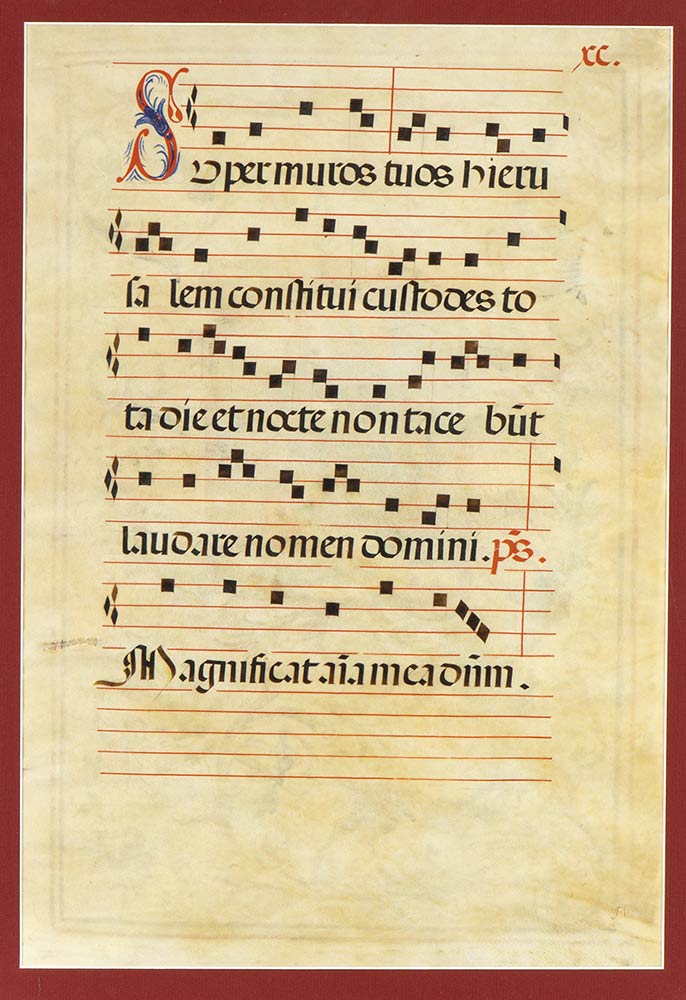 xc.
Super muros tuos hieru
sa lem constitui custodes to
ta die et nocte non tace būt
laudare nomen domini. p̄s.
Magnificat aīa mea dn̄m.